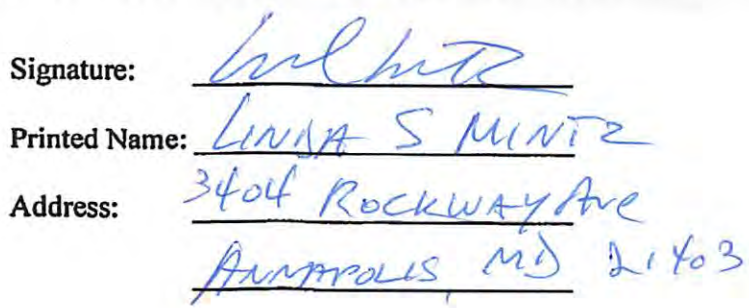 Signature:
Printed Name: LINDA S MINTZ
Address: 3404 ROCKWAY Ave
ANNAPOLIS, MD 21403